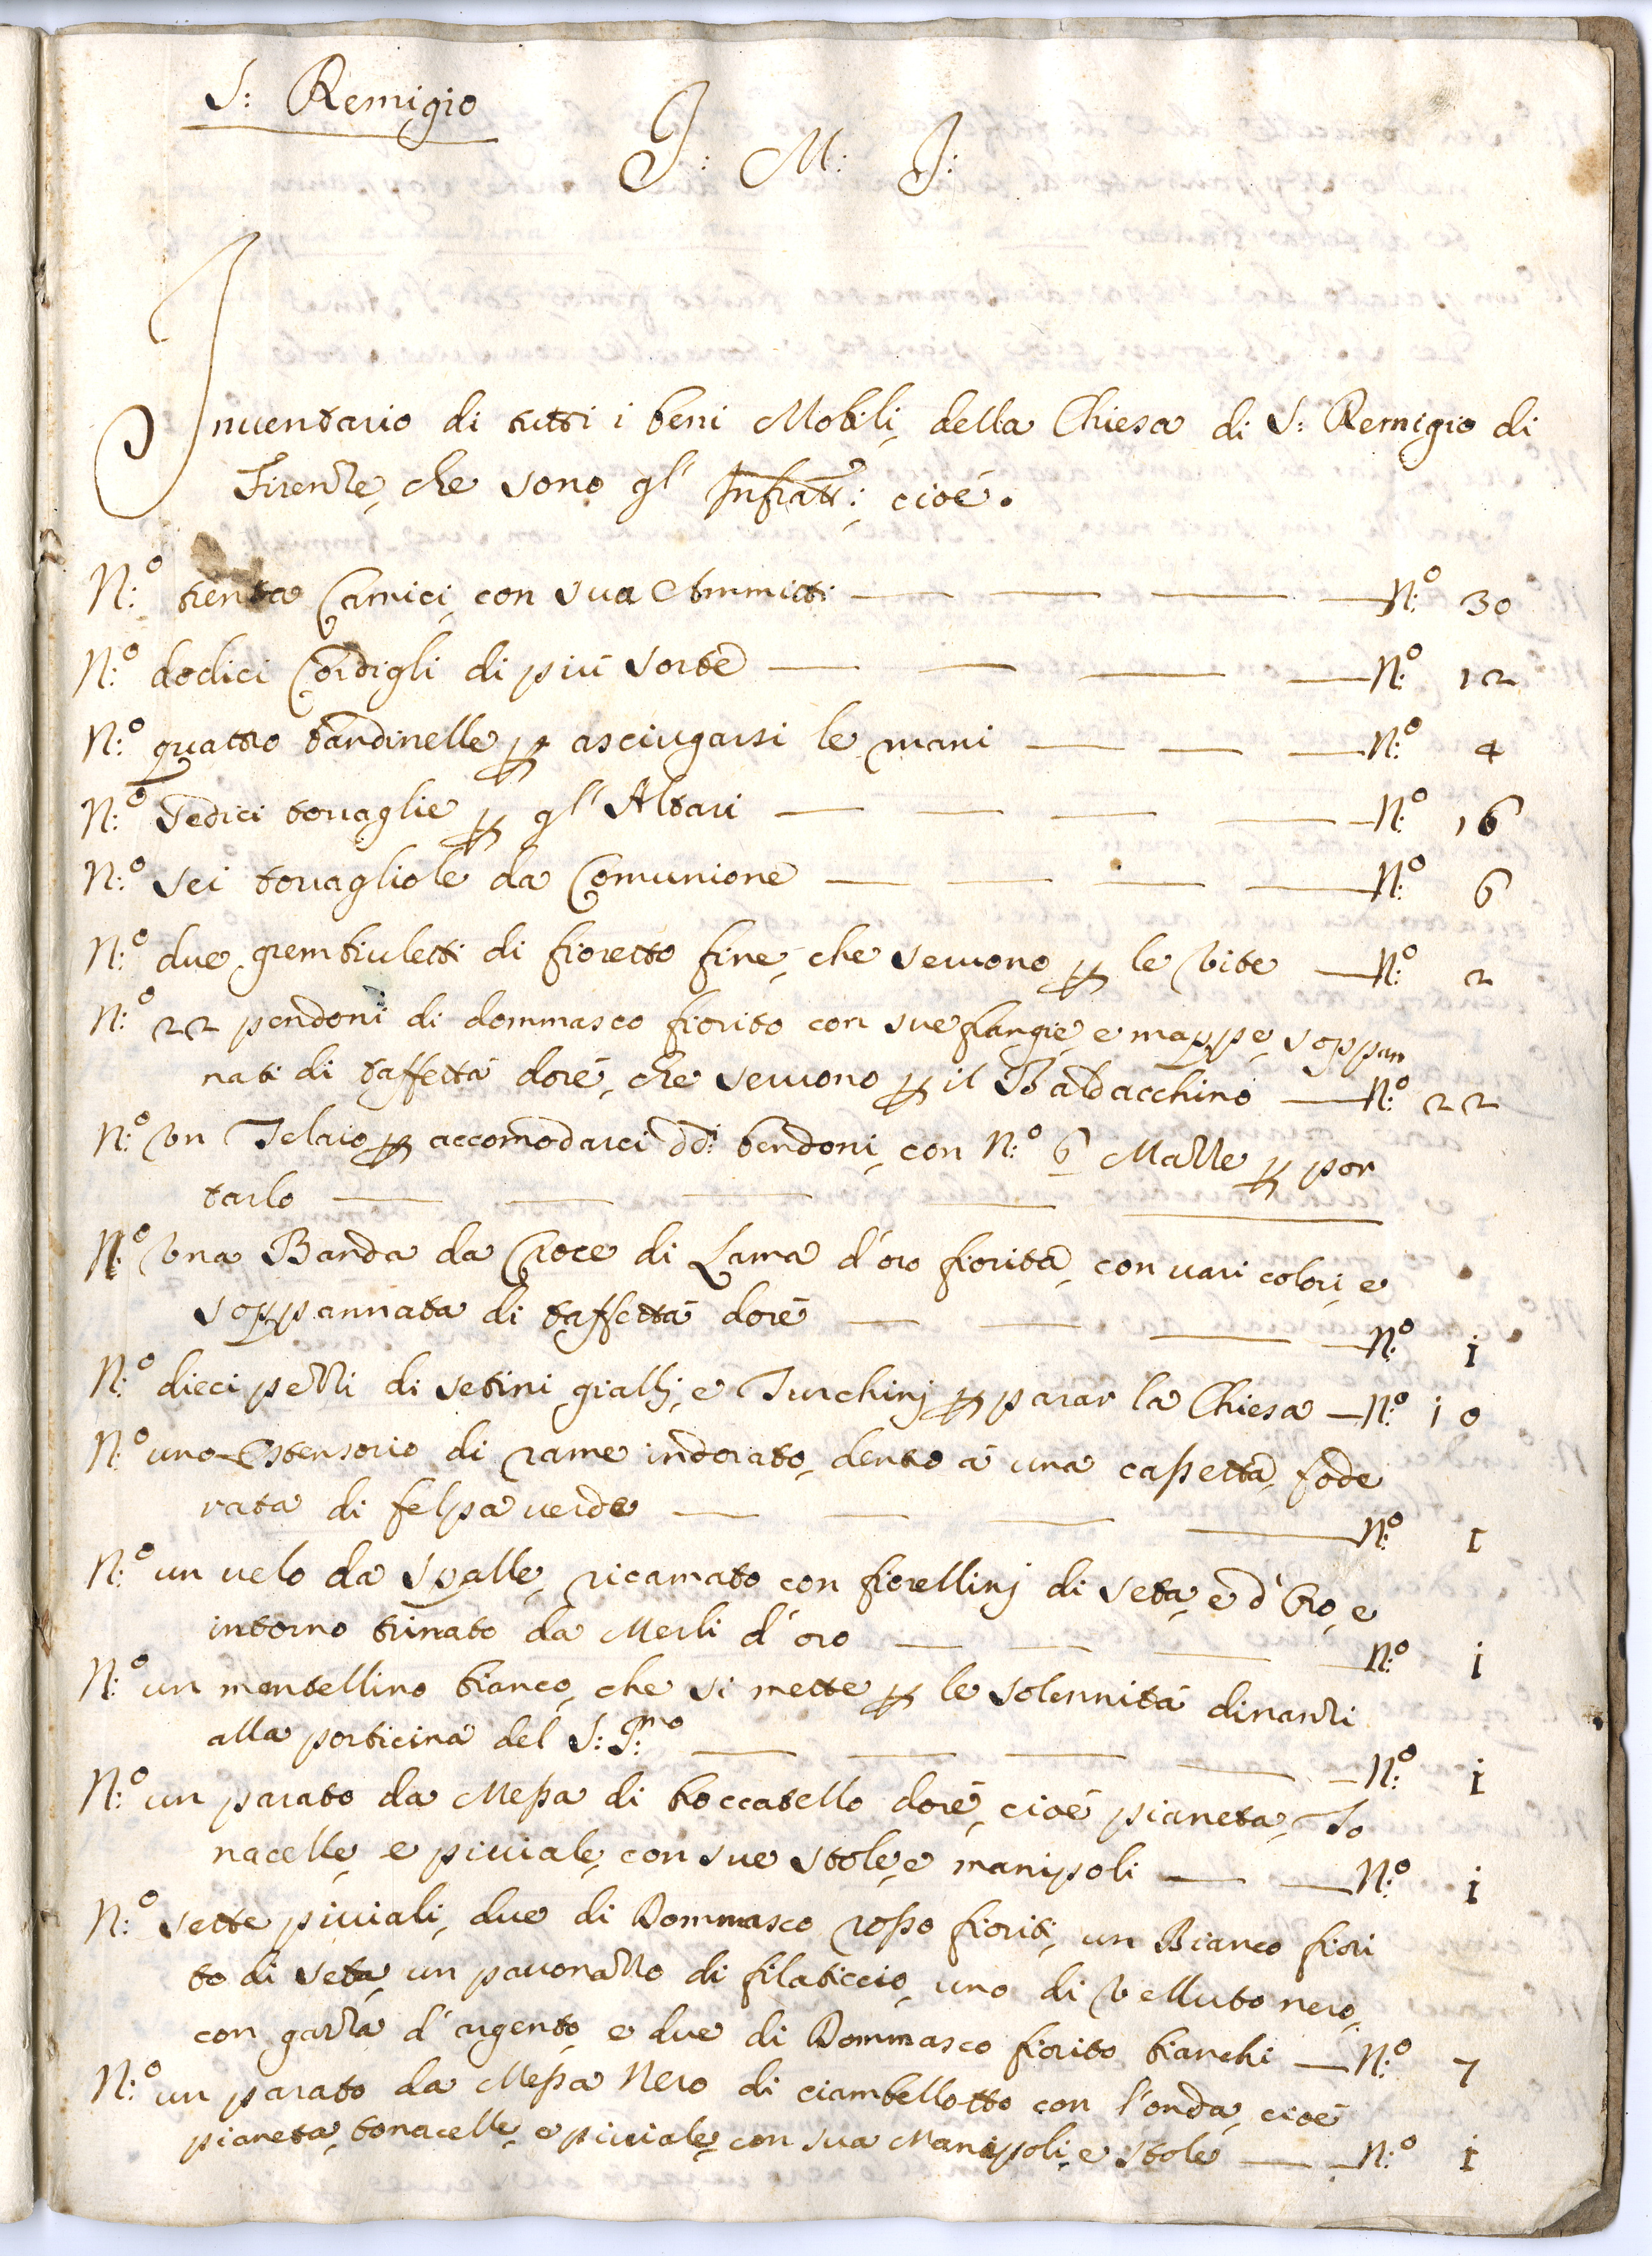 S: Remigio
J: M: J:
Inuentario di tutti i beni Mobili, della Chiesa di S: Remigio di
Firenze, che sono gl' Infratti: cioé.
N:º trenta Camici, con sua Ammitti — — — N:º 30
N:º dodici Cordigli di piú sorte — — — — N:º 12
N:º quattro bandinelle p asciugarsi le mani — — — N:º 4
N:º Sedici touaglie p gl' Altari — — — — N:º 16
N:º sei touagliole da Comunione — — — — N:º 6
N:º due grembiuletti di fioretto fine, che seruono p le Vite — N:º 2
N:º 22 pendoni di dommasco fiorito con sue frangie, e mappe, soppan
nati di taffettá doré, che seruono p il Baldacchino — N:º 22
N:º Vn Telaio p accomodarci dd:i bendoni, con N:º 6 Mazze p por
tarlo — — — — —
N:º Vna Banda da Croce di Lama d'oro fiorita, con uari colori, e
soppannata di taffettá doré — — — N:º 1
N:º dieci pezzi di setini gialli, e Turchinj p parar la Chiesa — N:º 10
N:º uno Ostensorio di rame indorato, dento á una cassetta, fode
rata di felpa uerde — — — — N:º 1
N:º un uelo da spalle, ricamato con fiorellinj di seta, e d'Oro, e
intorno trinato da Merli d'oro — — — N:º 1
N:º un mantellino bianco, che si mette p le solennitá dinanzi
alla porticina del S:S:mo — — — — N:º 1
N:º un parato da Messa di broccatello doré, cioé pianeta, To
nacelle, e piuiale, con sue stole, e manipoli — — N:º 1
N:º sette piuiali, due di Dommasco rosso fioriti, un Bianco fiori
to di seta, un pauonazzo di filaticcio, uno di Velluto nero,
con garza d'argento, e due di Dommasco fiorito bianchi — N:º 7
N:º un parato da Messa Nero di ciambellotto con l'onda, cioé
pianeta, tonacelle, e piuiale, con sua Manipoli, e stole — — N:º 1